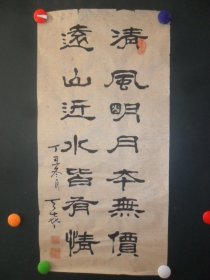 清風明月本無價
遠山近水皆有情
丁丑冬月